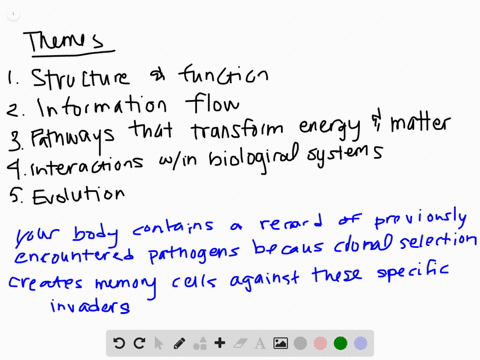 Themes
1. Structure & function
2. Information flow
3. Pathways that transform energy & matter
4. interactions w/in biological systems
5. Evolution
your body contains a record of previously
encountered pathogens becaus clonal selection
creates memory cells against these specific
invaders